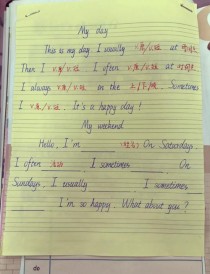 My day
This is my day. I usually v.原/v.短 at 时间.
Then I v.原/v.短. I often v.原/v.短 at 时间.
I always v.原/v.短 in the 上/下/晚. Sometimes
I v.原/v.短. It's a happy day!
My weekend
Hello, I'm (姓名). On Saturdays,
I often . I sometimes . On
Sundays, I usually . I sometimes
. I'm so happy. What about you?
do